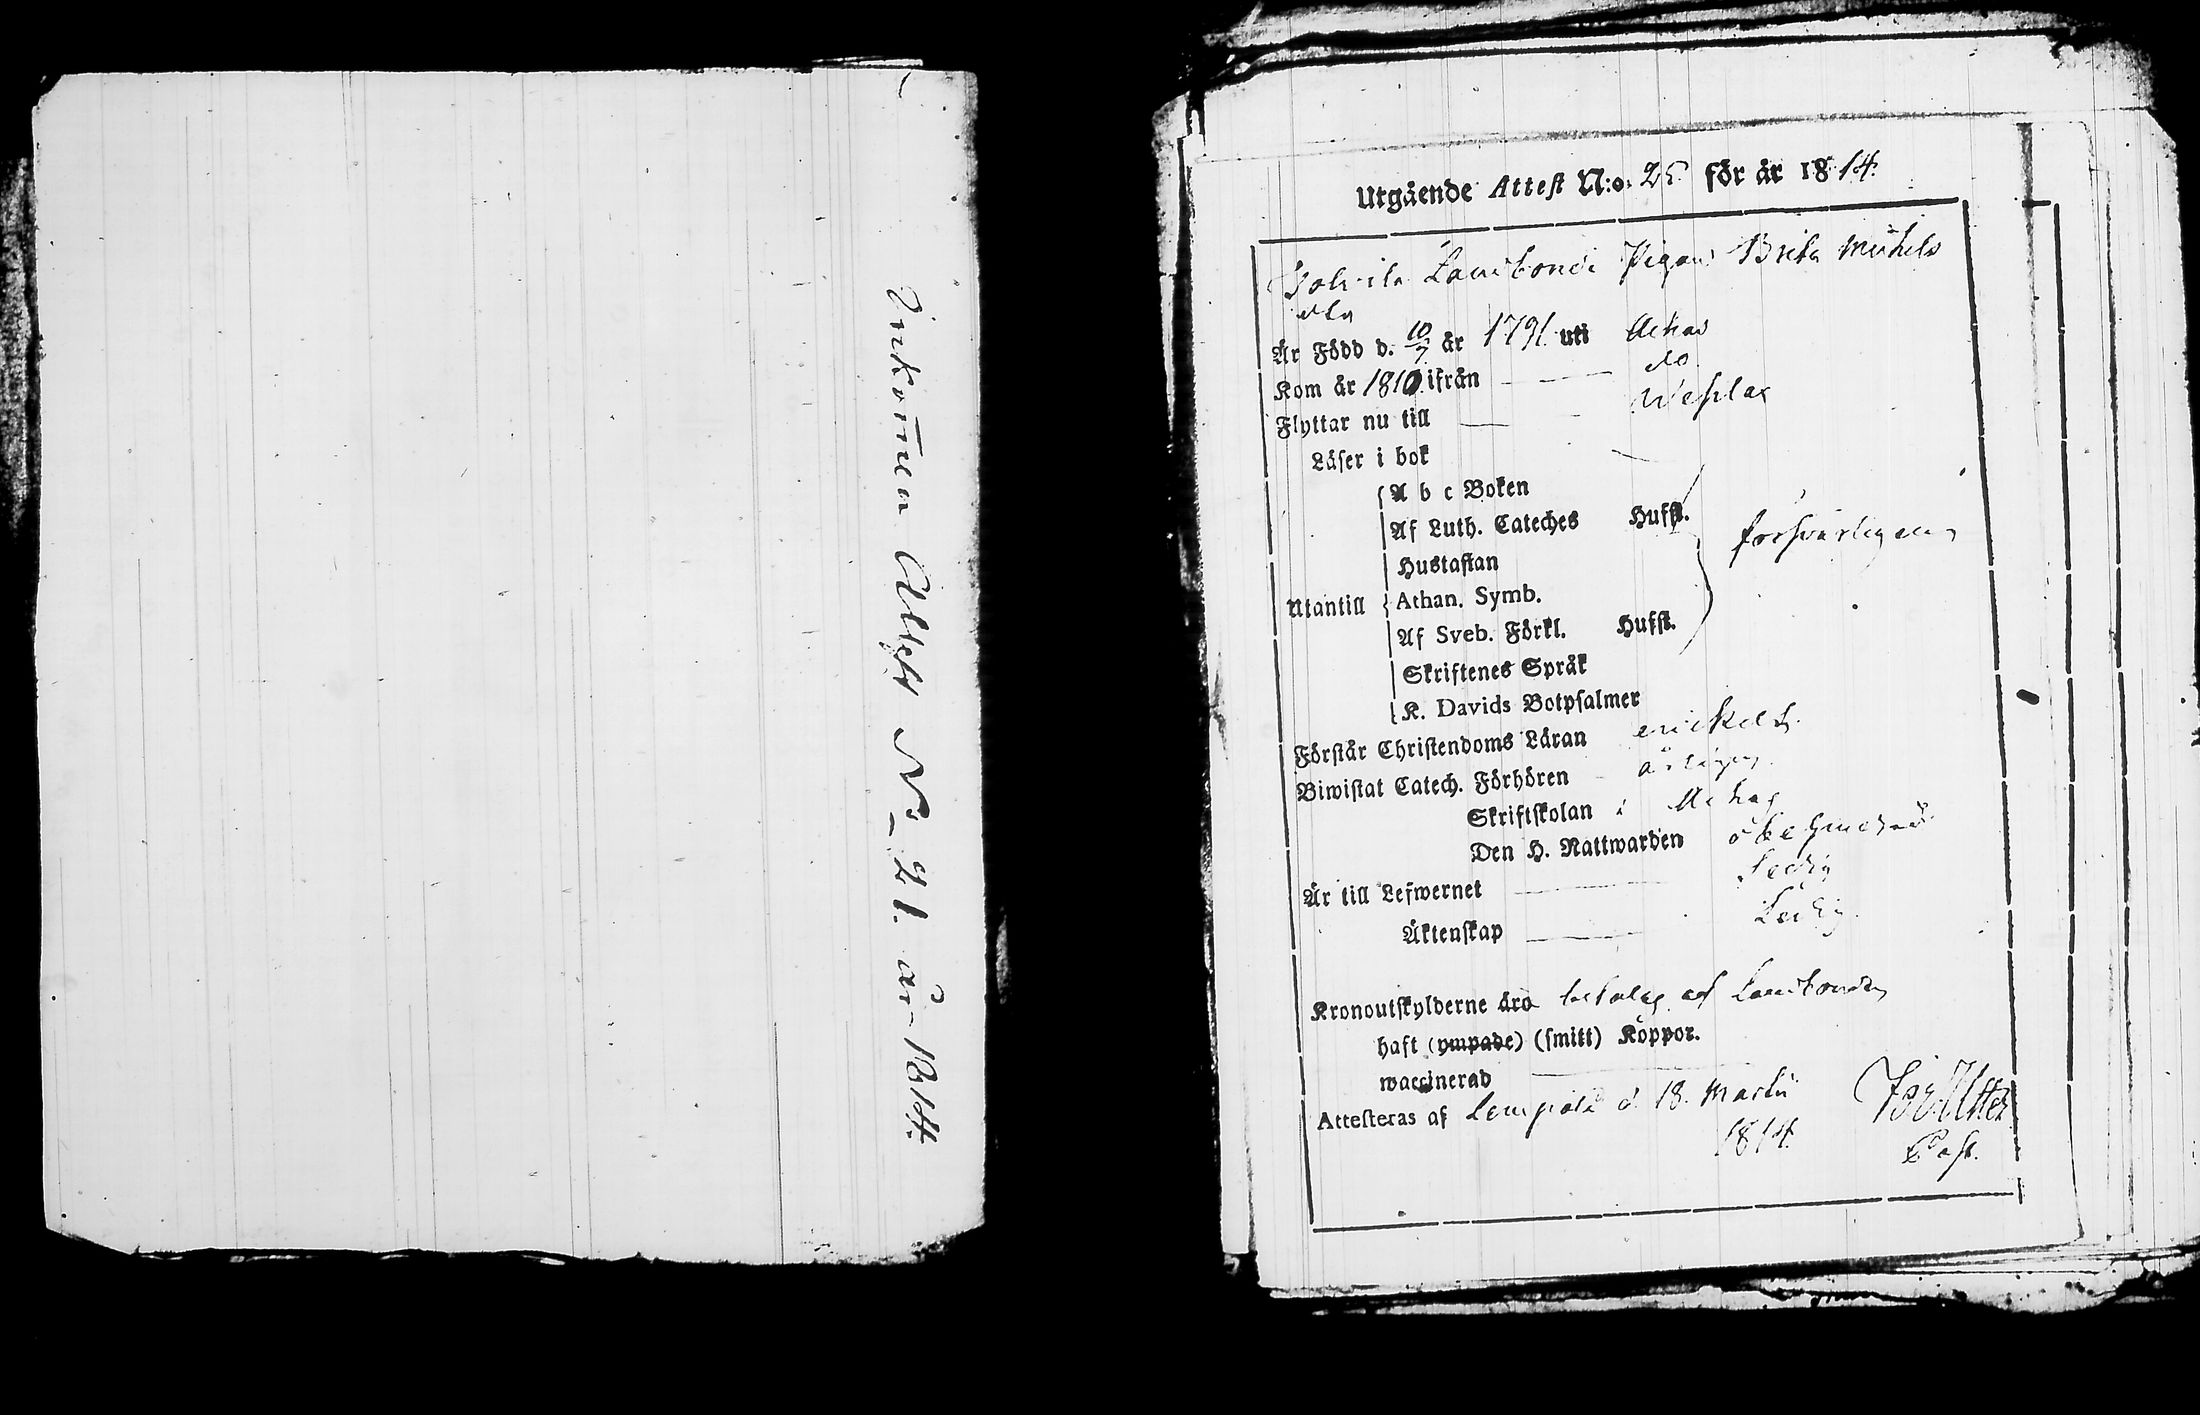 Inkommen Attest No 21. år 1814.
Utgående Attest N:o. 25 för år 1814.
Landbonde Pigan Brita Michels
dtr
Är Född d. 10/7 år 1791 uti Achas
Kom år 1810 ifrån do
Flyttar nu till Weslax
Läser i bok
A b c Boken
Af Luth. Cateches Hufst. försvarligen
Hustaflan
Utantill Athan. Symb.
Af Sveb. Förkl. Hufst.
Skriftenes Språk
K. Davids Botpsalmer
Förstår Christendoms Läran enskelt
Biwistat Catech. Förhören årligen
Skriftskolan i Achas
Den H. Nattwarden obehindrad
Är till Lefwernet sedig
Äktenskap Ledig
Kronoutskylderne äro betalas af Landbonden
haft (ympade) (smitt) Koppor.
waccinerad
Attesteras af Lempälä d. 18. Martii
1814.
Past.